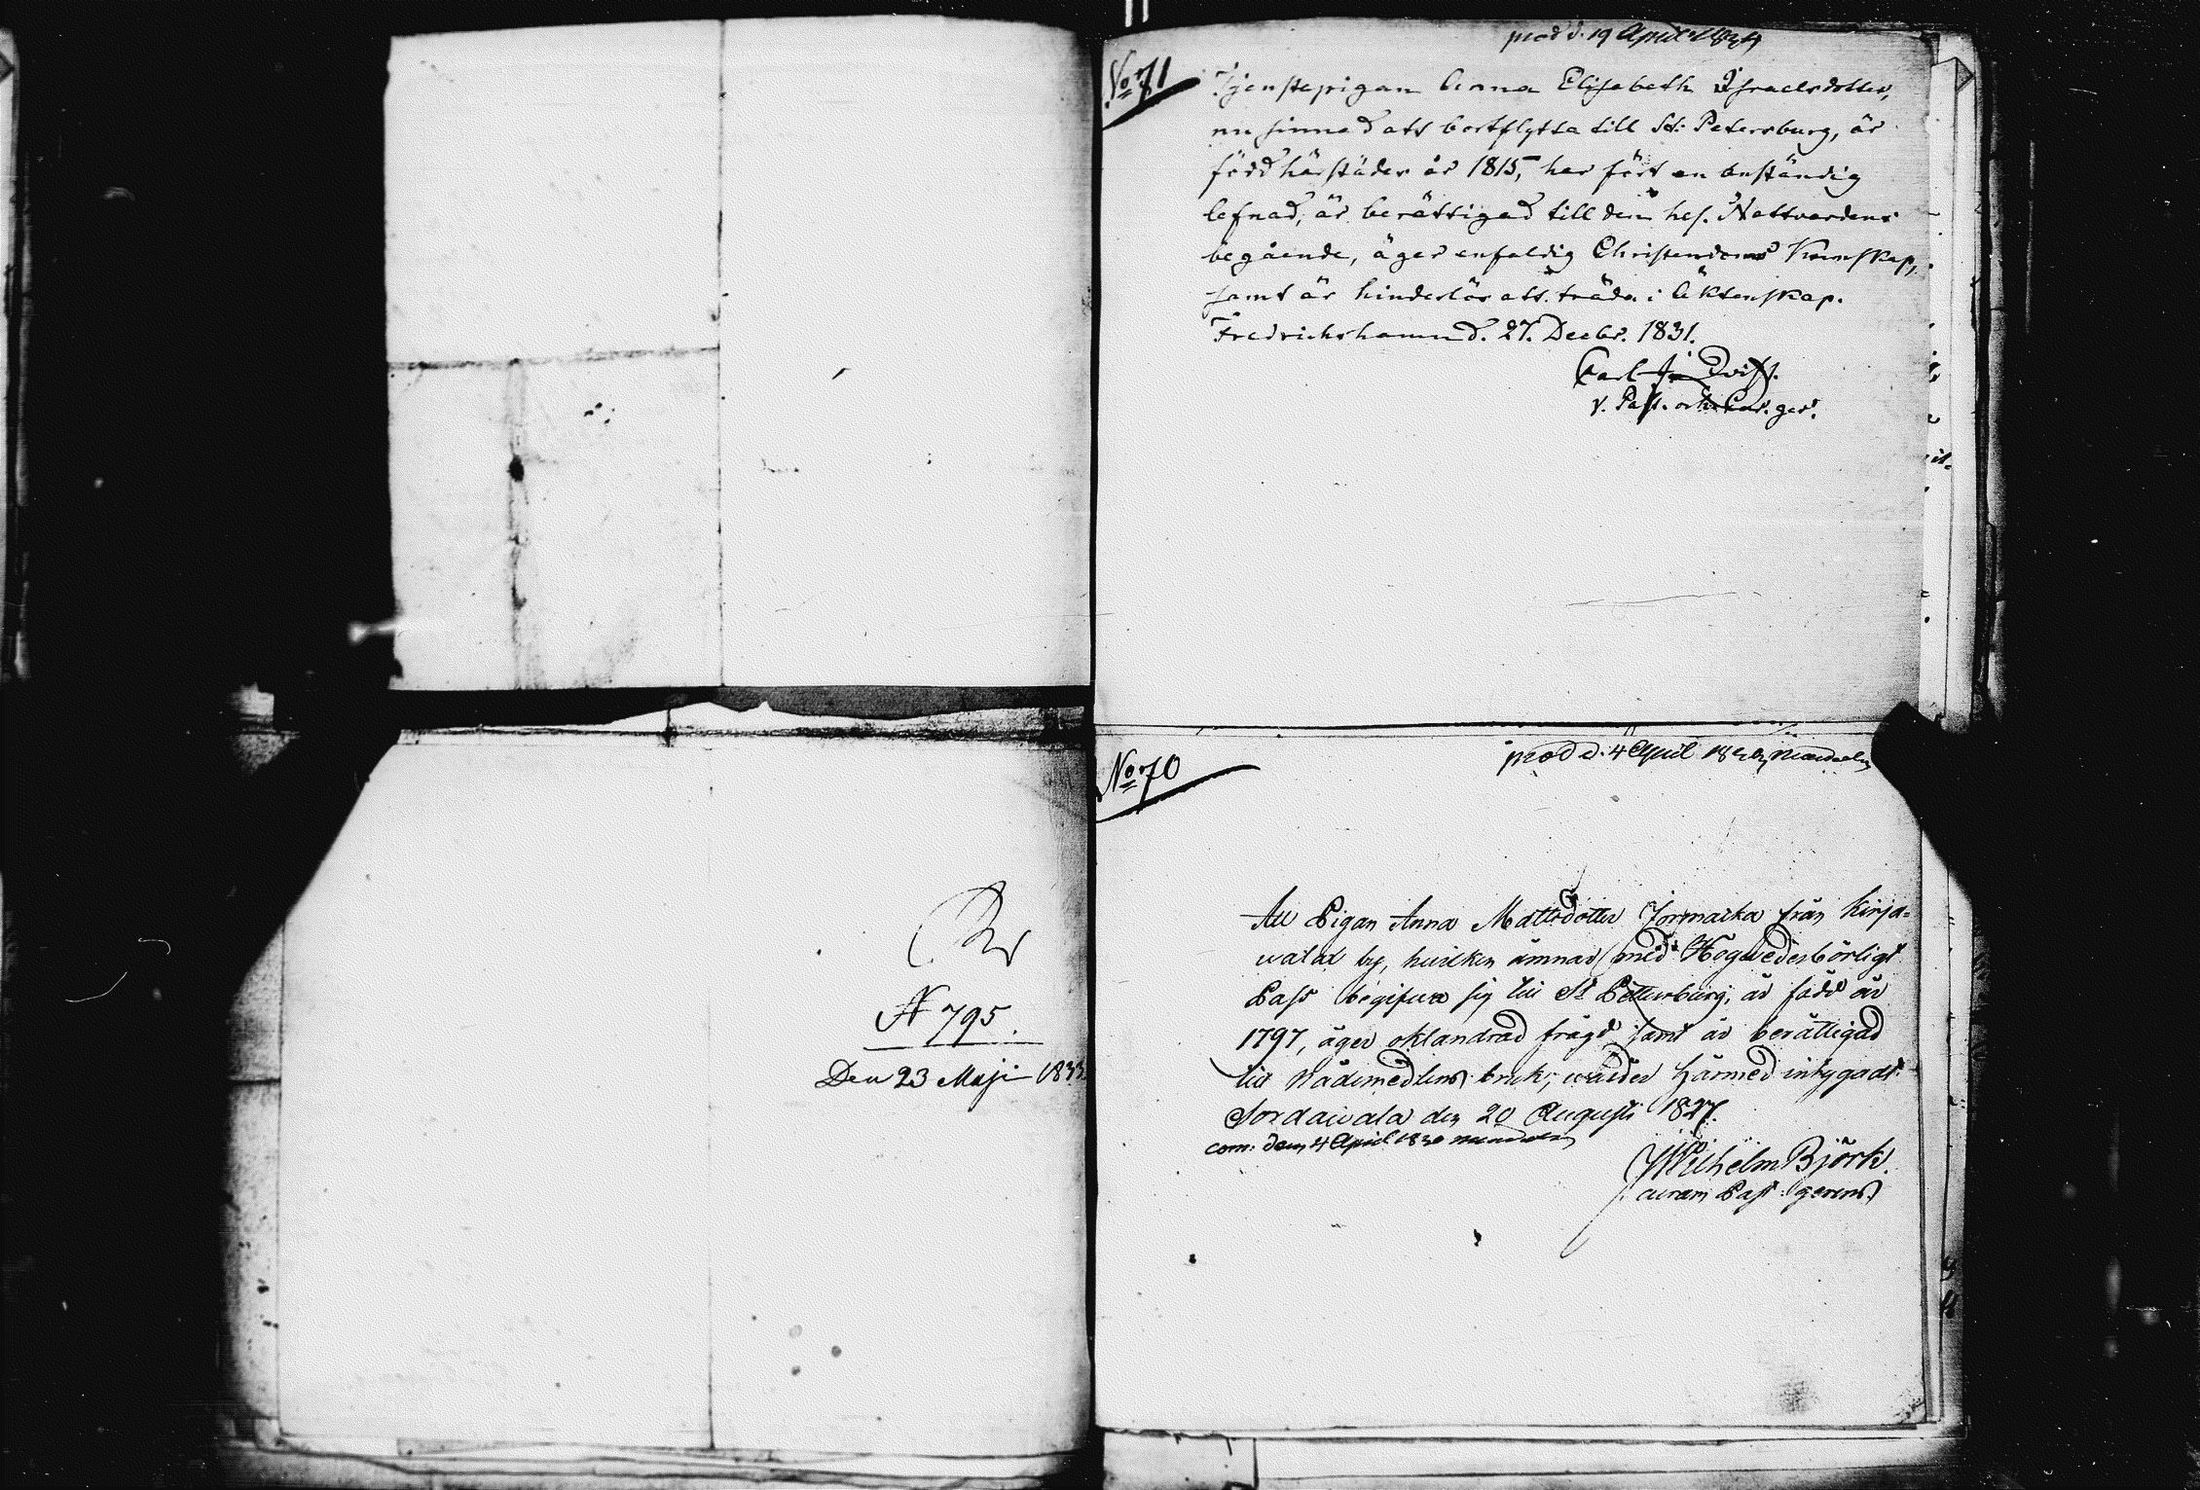 prod d. 19 April 1834
No 71
Tjenstepigan Anna Elisabeth Israelsdotter,
nu sinnad att bortflytta till St: Petersburg, är
född härstädes år 1815, har fört en anständig
lefnad, är berättigad till den hel. Nattvardens
begående, äger enfaldig Christendoms Kunskap,
samt är hinderlös att träda i Äktenskap.
Fredrichshamn d. 27. Decbr. 1831.
Carl
v. Past. och
No 70
prod d. 4 April
Att Pigan Anna Mattsdotter från Kirja-
walax by, hvilken ämnar med Högvederbörligt
Pass begifva sig till St Pettersburg, är född år
1797, äger oklandrad frägd samt är berättigad
till Nådemedlens bruk; warder härmed intygadt.
Sordawala den 20 Augusti 1827.
com. den 4 April
Wilhelm Björk.
curam Past: gerens
N 795.
Den 23 Maji 1833